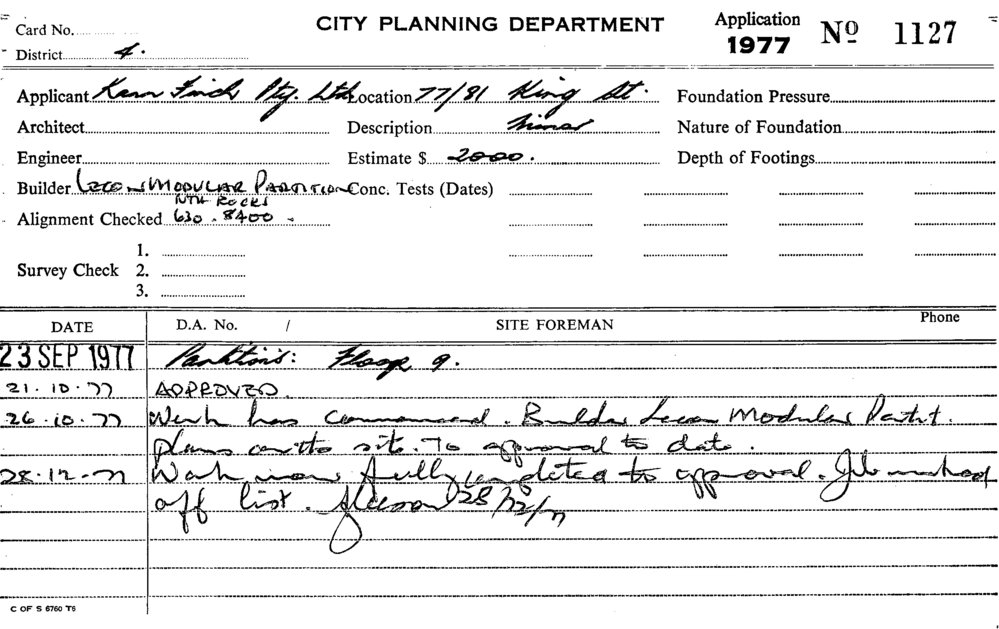 CITY PLANNING DEPARTMENT
Application 1977 Nº 1127
Card No.
District 4.
Applicant Finch Pty. Ltd Location 77/81 King St. Foundation Pressure
Architect Description Minor Nature of Foundation
Engineer Estimate $ 2000. Depth of Footings
Builder MODULAR PARTITION Conc. Tests (Dates)
NTH ROCKS
Alignment Checked 630.8400.
1.
Survey Check 2.
3.
DATE D.A. No. / SITE FOREMAN Phone
23 SEP 1977 Partitions: Floor 9.
21.10.77 APPROVED.
26.10.77 Work has commenced. Builder Modular Partit.
plans on site. To approval to date.
28.12.77 Work now fully completed to approval. Job marked
off list. 28/12/77
C OF S 6760 T6